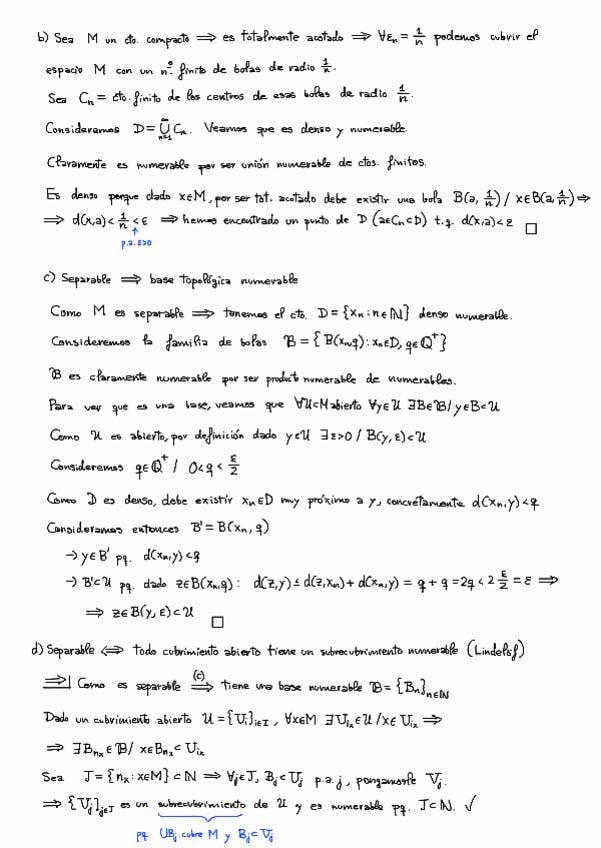 b) Sea M un cto. compacto ⟹ es totalmente acotado ⟹ ∀εₙ = 1/n podemos cubrir el
espacio M con un nº finito de bolas de radio 1/n.
Sea Cₙ = cto. finito de los centros de esas bolas de radio 1/n.
Consideramos D = ∪ₙ₌₁^∞ Cₙ. Veamos que es denso y numerable.
Claramente es numerable por ser unión numerable de ctos. finitos.
Es denso porque dado x∈M, por ser tot. acotado debe existir una bola B(a, 1/n) / x∈B(a, 1/n) ⟹
⟹ d(x,a) < 1/n < ε ⟹ hemos encontrado un punto de D (a∈Cₙ⊂D) t.q. d(x,a) < ε □
↑
p.a. ε>0
c) Separable ⟹ base topológica numerable
Como M es separable ⟹ tenemos el cto. D = {xₙ : n∈ℕ} denso numerable.
Consideremos la familia de bolas 𝓑 = {B(xₙ,q) : xₙ∈D, q∈ℚ⁺}
𝓑 es claramente numerable por ser product numerable de numerables.
Para ver que es una base, veamos que ∀U⊂M abierto ∀y∈U ∃B∈𝓑 / y∈B⊂U
Como U es abierto, por definición dado y∈U ∃ε>0 / B(y, ε)⊂U
Consideremos q∈ℚ⁺ / 0<q<ε/2
Como D es denso, debe existir xₙ∈D muy próximo a y, concretamente d(xₙ,y)<q
Consideramos entonces B' = B(xₙ, q)
→ y∈B' pq. d(xₙ,y)<q
→ B'⊂U pq. dado z∈B(xₙ,q) : d(z,y) ≤ d(z,xₙ) + d(xₙ,y) = q + q = 2q < 2 ε/2 = ε ⟹
⟹ z∈B(y, ε)⊂U □
d) Separable ⟺ todo cubrimiento abierto tiene un subrecubrimiento numerable (Lindelöf)
⟹| Como es separable ⟹(c) tiene una base numerable 𝓑 = {Bₙ}ₙ∈ℕ
Dado un cubrimiento abierto U = {Uᵢ}ᵢ∈I, ∀x∈M ∃Uᵢₓ∈U / x∈Uᵢₓ ⟹
⟹ ∃Bₙₓ∈𝓑 / x∈Bₙₓ⊂Uᵢₓ
Sea J = {nₓ : x∈M} ⊂ ℕ ⟹ ∀j∈J, Bⱼ⊂Uⱼ p.a. j, pongamosle Vⱼ.
⟹ {Vⱼ}ⱼ∈J es un subrecubrimiento de U y es numerable pq. J⊂ℕ. ✓
pq ∪Bⱼ cubre M y Bⱼ⊂Vⱼ